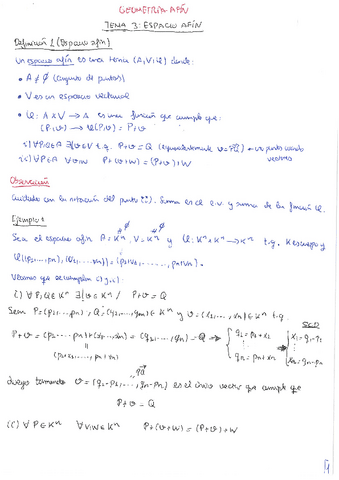 GEOMETRÍA AFÍN
TEMA 3: ESPACIO AFÍN
Definición 1 (Espacio afín)
Un espacio afín es una terna (A,V,φ) donde:
• A ≠ ∅ (conjunto de puntos)
• V es un espacio vectorial
• φ: A x V → A es una función que cumple que:
(P,v) → φ(P,v) = P+v
i) ∀P,Q∈A ∃!v∈V t.q. P+v = Q (equivalentemente v = PQ)
vectores
ii) ∀P∈A ∀v,w P+(v+w) = (P+v)+w
Observación
Cuidado con la notación del punto ii). Suma en el e.v. y suma de la función φ.
Ejemplo 1
Sea el espacio afín A = Kⁿ, V = Kⁿ y φ: Kⁿ x Kⁿ → Kⁿ t.q. K es cuerpo y
φ((p₁,...,pₙ),(v₁,...,vₙ)) = (p₁+v₁,......,pₙ+vₙ).
Veamos que se cumplen i) y ii):
i) ∀P,Q∈Kⁿ ∃!v∈Kⁿ / P+v = Q
Sean P=(p₁,...,pₙ), Q=(q₁,...,qₙ)∈Kⁿ y v=(x₁,...,xₙ)∈Kⁿ t.q.
SCD
P+v = (p₁,...,pₙ)+(x₁,...,xₙ) = (q₁,...,qₙ) = Q → { q₁ = p₁+x₁ { x₁ = q₁-p₁
(p₁+x₁,...,pₙ+xₙ) qₙ = pₙ+xₙ xₙ = qₙ-pₙ
Luego tomando v = (q₁-p₁,...,qₙ-pₙ) es el único vector que cumple que
P+v = Q
ii) ∀P∈Kⁿ ∀v,w∈Kⁿ P+(v+w) = (P+v)+w
1